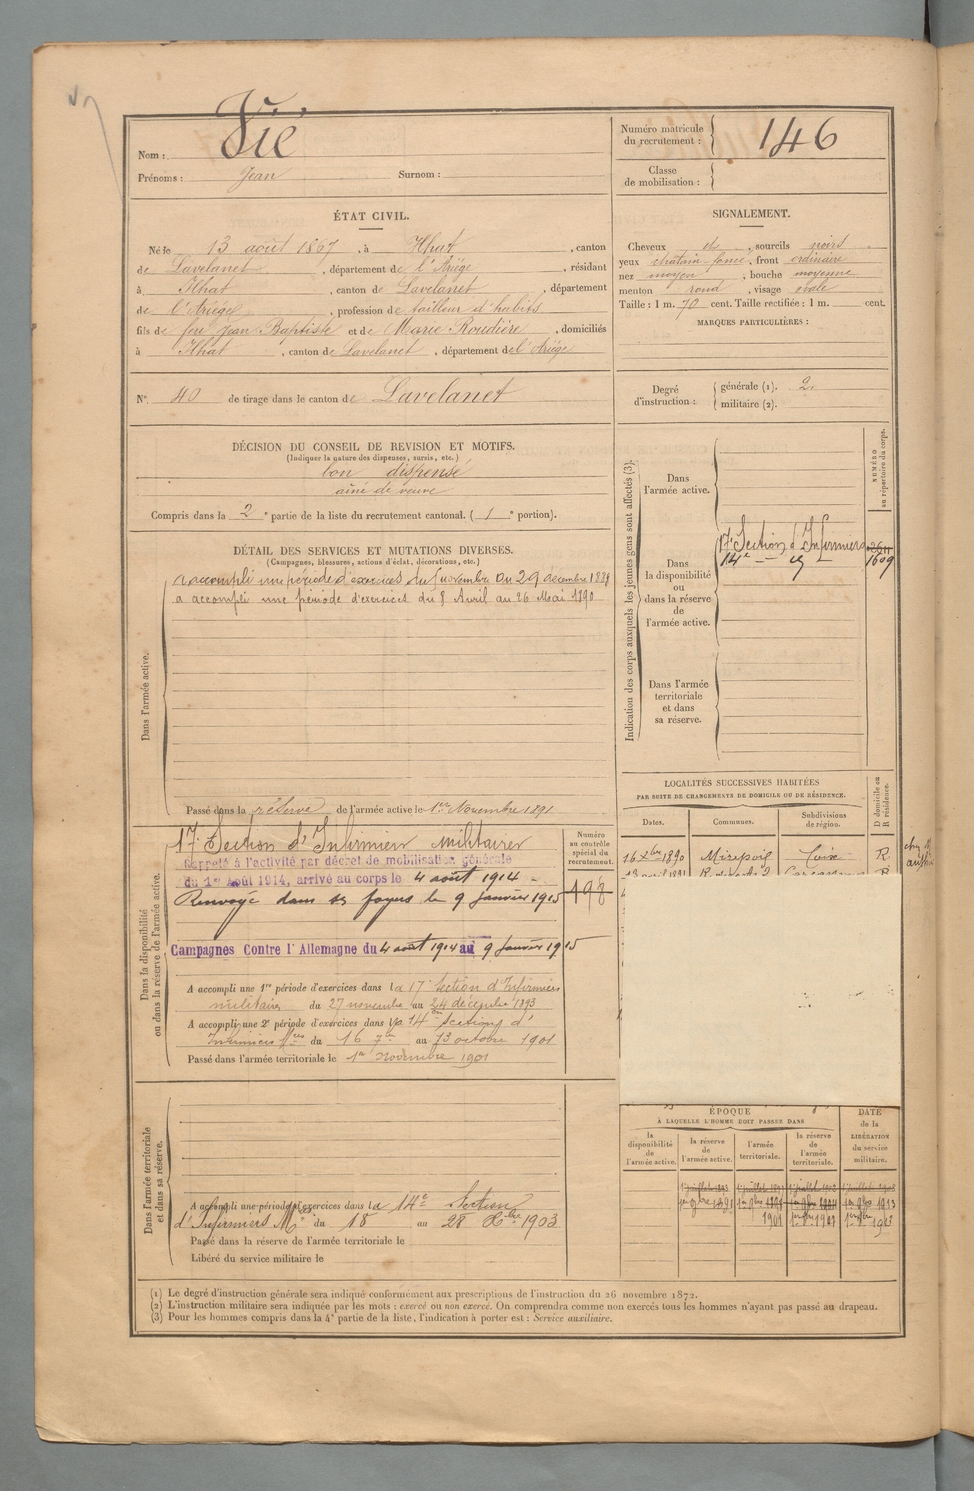 Nom : Vié
Prénoms : Jean Surnom :
Numéro matricule du recrutement : 146
Classe de mobilisation :
ÉTAT CIVIL.
Né le 13 août 1867, à Ilhat, canton
de Lavelanet, département de l'Ariége, résidant
à Ilhat, canton de Lavelanet, département
de l'Ariége, profession de tailleur d'habits
fils de feu Jean Baptiste et de Marie Roudière, domiciliés
à Ilhat, canton de Lavelanet, département de l'Ariége
N° 40 de tirage dans le canton de Lavelanet
SIGNALEMENT.
Cheveux et, sourcils noirs
yeux chatain foncé, front ordinaire
nez moyen, bouche moyenne
menton rond, visage ovale
Taille : 1 m. 70 cent. Taille rectifiée : 1 m. cent.
MARQUES PARTICULIÈRES :
Degré d'instruction : générale (1). 2.
militaire (2).
DÉCISION DU CONSEIL DE REVISION ET MOTIFS.
(Indiquer la nature des dispenses, sursis, etc.)
bon dispensé
aîné de veuve
Compris dans la 2e partie de la liste du recrutement cantonal. (1e portion).
DÉTAIL DES SERVICES ET MUTATIONS DIVERSES.
(Campagnes, blessures, actions d'éclat, décorations, etc.)
Dans l'armée active.
a accompli une période d'exercices du novembre au 29 décembre 1889
a accompli une période d'exercices du 8 Avril au 26 Mai 1890
Passé dans la réserve de l'armée active le 1er Novembre 1891
Indication des corps auxquels les jeunes gens sont affectés (3).
NUMÉRO au répertoire du corps.
Dans l'armée active.
Dans la disponibilité ou dans la réserve de l'armée active.
17e Section d'Infirmiers
14e - d° - 1609
Dans l'armée territoriale et dans sa réserve.
LOCALITÉS SUCCESSIVES HABITÉES
PAR SUITE DE CHANGEMENTS DE DOMICILE OU DE RÉSIDENCE.
Dates. Communes. Subdivisions de région. D domicile ou R résidence.
16 Xbre 1890 Mirepoix Foix R
Dans la disponibilité ou dans la réserve de l'armée active.
Numéro au contrôle spécial du recrutement.
498
17e Section d'Infirmiers militaires
Rappelé à l'activité par décret de mobilisation générale
du 1er Août 1914, arrivé au corps le 4 août 1914 -
Renvoyé dans ses foyers le 9 janvier 1915
Campagnes Contre l'Allemagne du 4 août 1914 au 9 janvier 1915
A accompli une 1re période d'exercices dans la 17e Section d'Infirmiers
militaires du 27 novembre au 24 décembre 1893
A accompli une 2e période d'exercices dans la 14e Section d'
Infirmiers Mres du 16 7bre au 13 octobre 1901
Passé dans l'armée territoriale le 1er novembre 1901
Dans l'armée territoriale et dans sa réserve.
A accompli une période d'exercices dans la 14e Section
d'Infirmiers Mres du 15 au 28 Xbre 1903
Passé dans la réserve de l'armée territoriale le
Libéré du service militaire le
ÉPOQUE
À LAQUELLE L'HOMME DOIT PASSER DANS
la disponibilité de l'armée active. la réserve de l'armée active. l'armée territoriale. la réserve de l'armée territoriale. DATE de la LIBÉRATION du service militaire.
(1) Le degré d'instruction générale sera indiqué conformément aux prescriptions de l'instruction du 26 novembre 1872.
(2) L'instruction militaire sera indiquée par les mots : exercé ou non exercé. On comprendra comme non exercés tous les hommes n'ayant pas passé au drapeau.
(3) Pour les hommes compris dans la 4e partie de la liste, l'indication à porter est : Service auxiliaire.